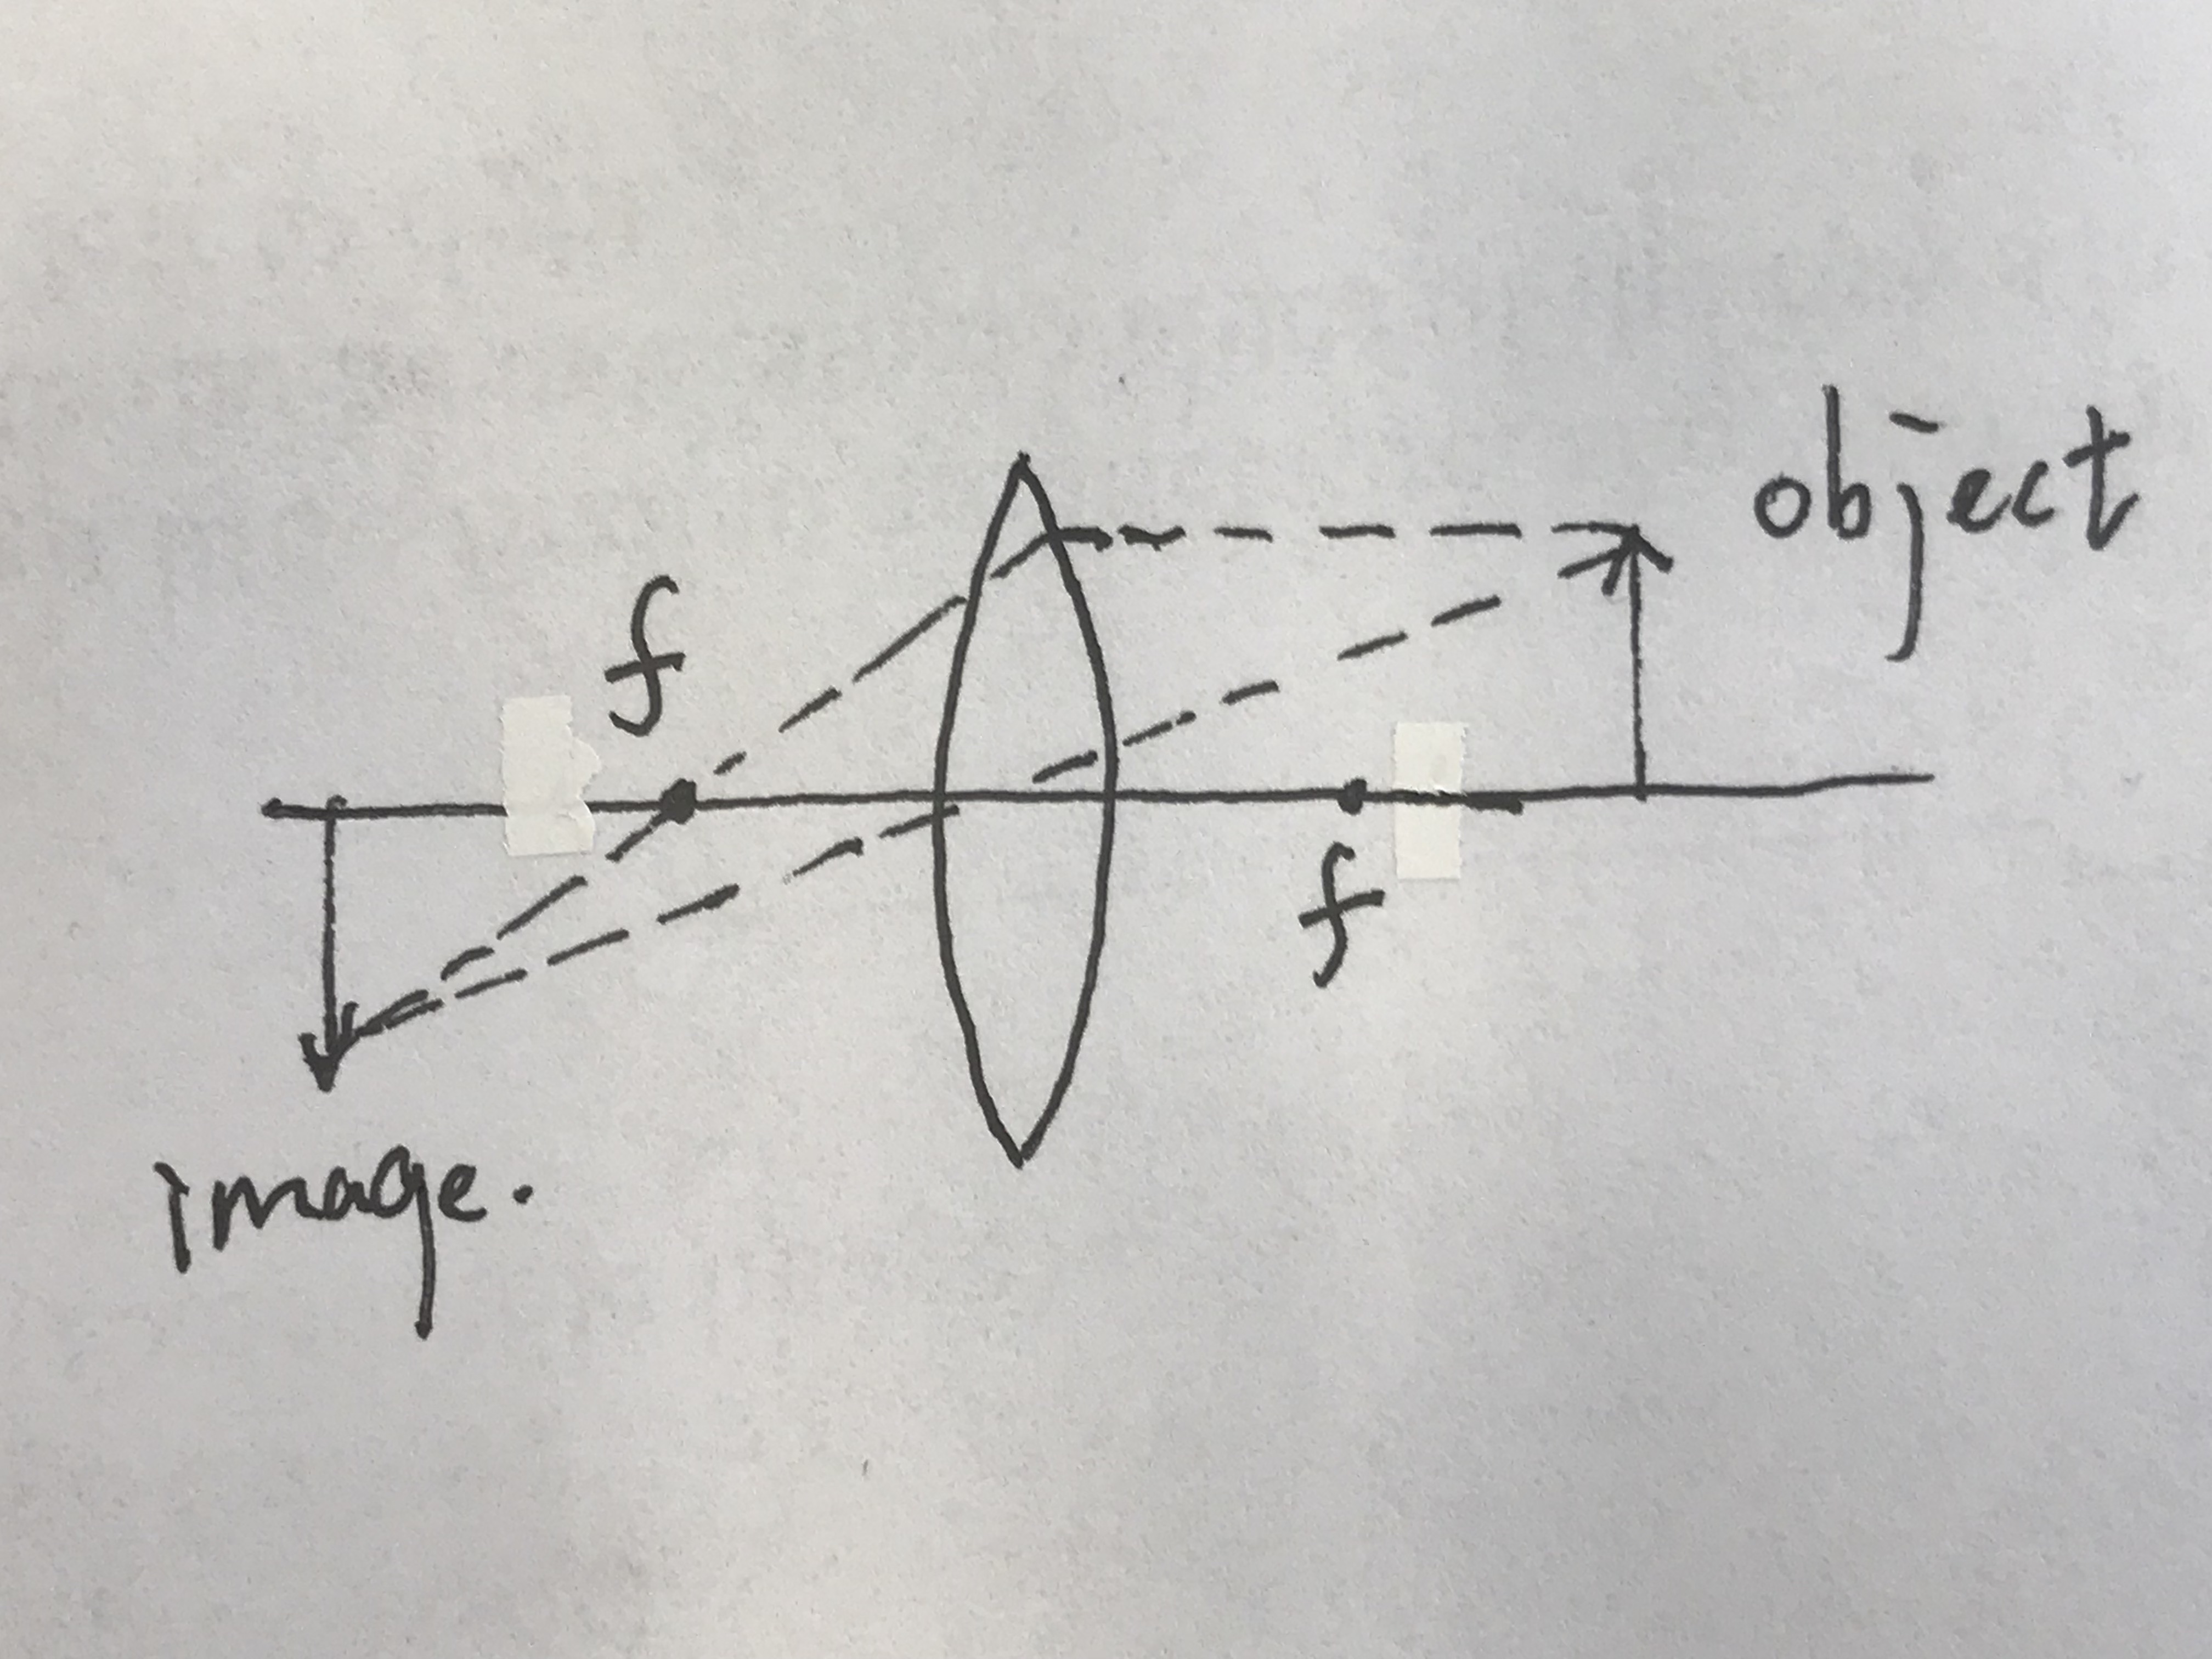 object
f
f
image.